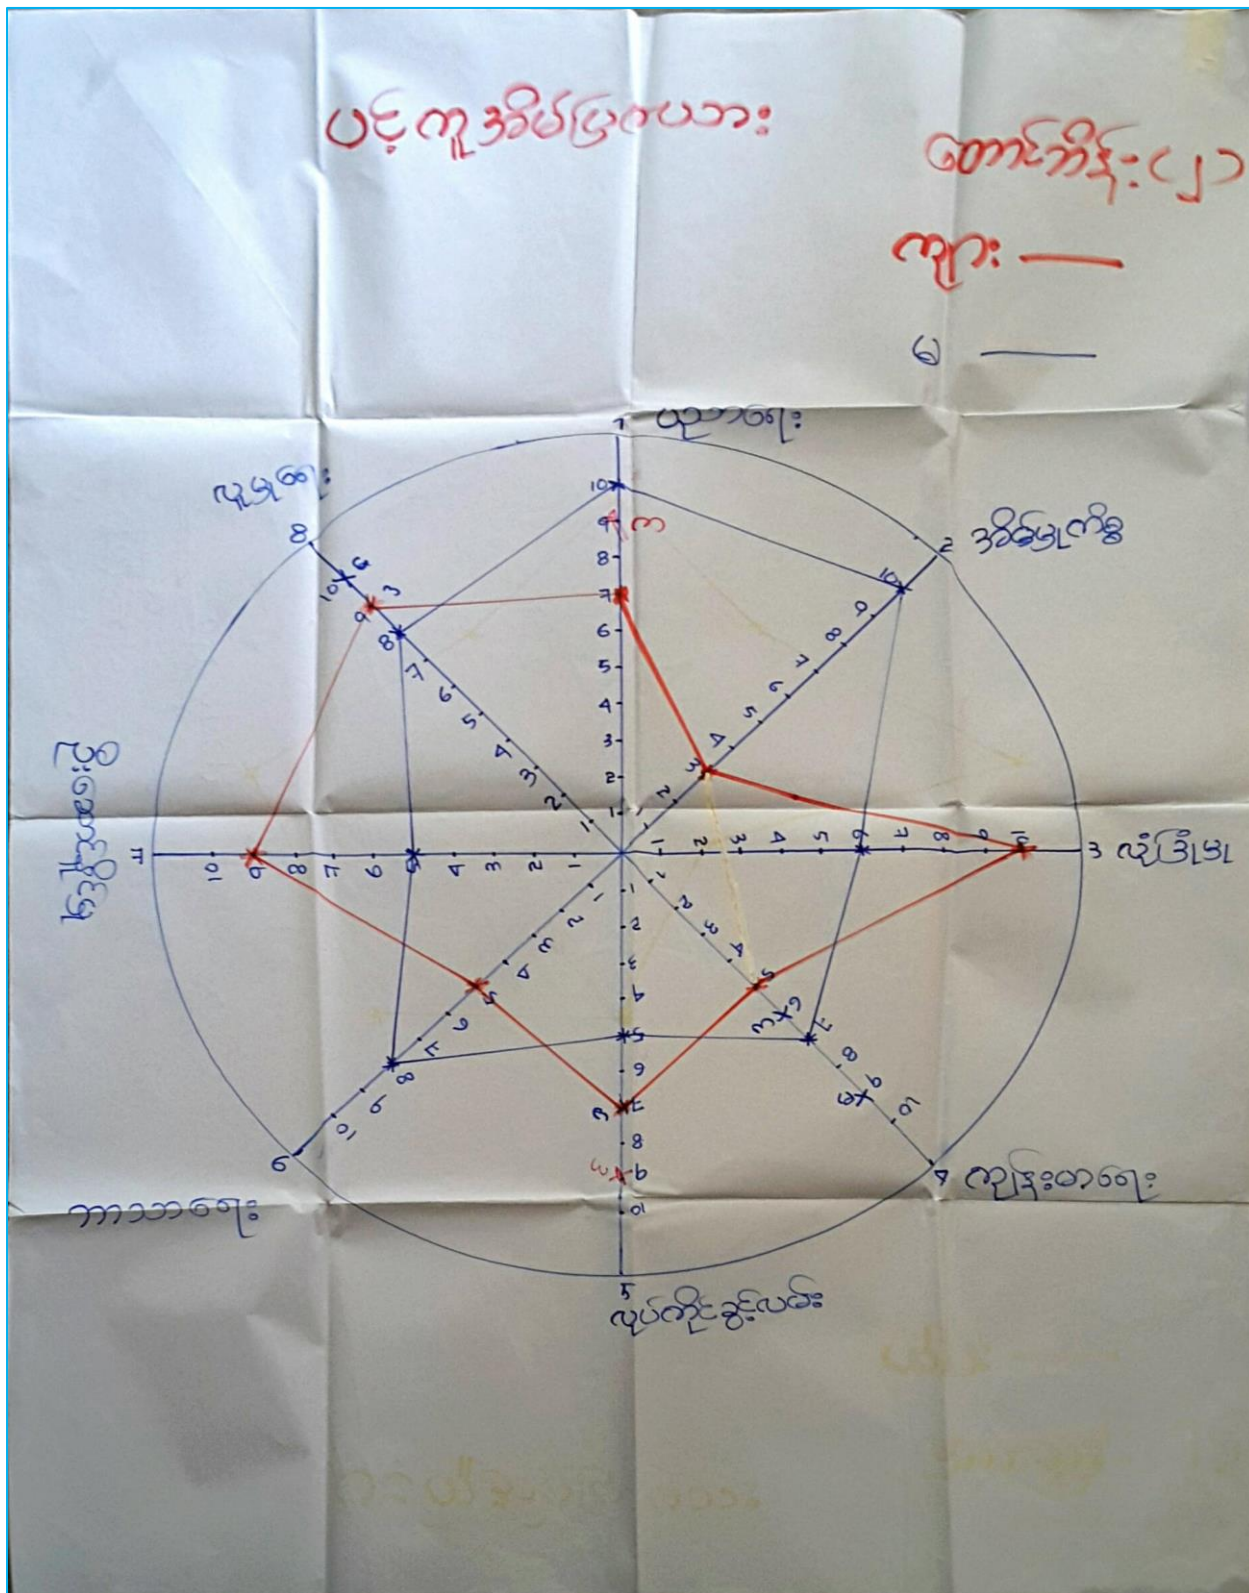 ပင့်ကူအိမ်ပြဇယား
တောင်ဘိန်း(၂)
ကျား
မ
1 ပညာရေး
2 အိမ်မှုကိစ္စ
3 လုံခြုံမှု
4 ကျန်းမာရေး
5 လုပ်ကိုင်ခွင့်လမ်း
6 ဘာသာရေး
7 ဦးဆောင်နိုင်မှု
8 လူမှုရေး
10
9
8
7
6
5
4
3
2
1
1 2 3 4 5 6 7 8 9 10
1 2 3 4 5 6 7 8 9 10
1 2 3 4 5 6 7 8 9 10
1
2
3
4
5
6
7
8
9
10
1 2 3 4 5 6 7 8 9 10
10 9 8 7 6 5 4 3 2 1
10 9 8 7 6 5 4 3 2 1